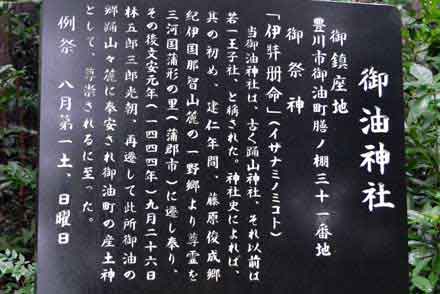 御油神社
御鎮座地
豊川市御油町膳ノ棚三十一番地
御祭神
「伊弉冊命」（イサナミノミコト）
当御油神社は、古く踊山神社、それ以前は
若一王子社、と稱された。神社史によれば、
其の初め、建仁年間、藤原俊成郷
紀伊国那智山麓の一野郷より尊霊を
三河国蒲形の里（蒲郡市）に遷し奉り、
その後文安元年（一四四四年）九月二十六日
林五郎三郎光朝、再遷して此所御油の
郷踊山々麓に奉安され御油町の産土神
として、尊崇されるに至った。
例祭　八月第一土、日曜日